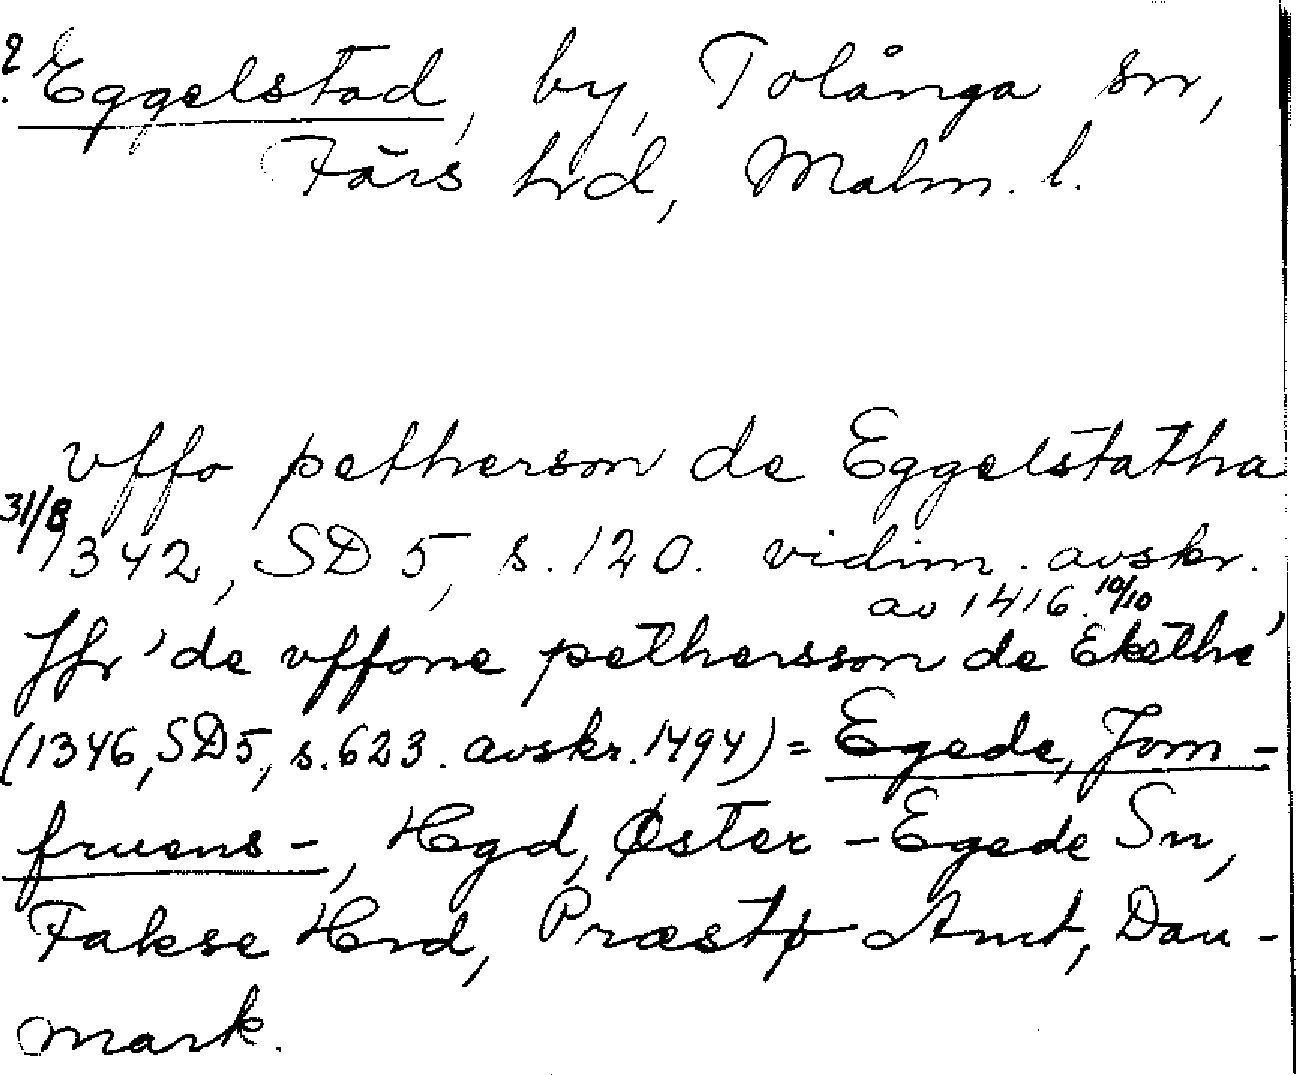 ? Eggelstad, by, Tolånga sn,
Färs hrd, Malm. l.
vffo petherson de Eggelstatha
31/8 1342, SD 5, s. 120. vidim. avskr.
av 1416 10/10
Jfr 'de vffone pethersson de Ekethe'
(1346, SD5, s. 623. avskr. 1494) = Egede, Jom-
fruens-, Hgd, Øster-Egede Sn,
Fakse Hrd, Præstø Amt, Dan-
mark.